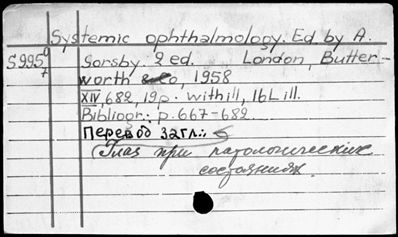 Systemic ophthalmology. Ed. by A.
S9950 Sorsby. 2 ed. London, Butter-
7 worth & Co, 1958
XIV, 682, 19p. with ill, 16 L ill.
Bibliogr.: p. 667-682.
Перевод загл.:
(Глаз при патологических
состояниях.